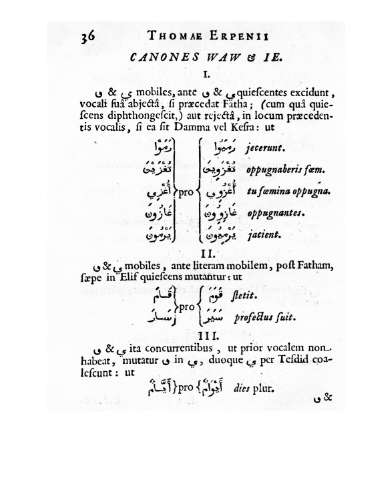 36 THOMAE ERPENII
CANONES WAW & IE.
I.
و & ي mobiles, ante و & ي quiescentes excidunt,
vocali suâ abjectâ, si præcedat Fatha; (cum quâ quie-
scens diphthongescit,) aut rejectâ, in locum præceden-
tis vocalis, si ea sit Damma vel Kesra: ut
رَمَوْا رَمَيُوا jecerunt.
تُغْزَيْنَ تُغْزَوِينَ oppugnaberis fœm.
أُغْزِي pro أُغْزُوِي tu fœmina oppugna.
غَازُونَ غَازِوُونَ oppugnantes.
يَرْمُونَ يَرْمِيُونَ jacient.
II.
و & ي mobiles, ante literam mobilem, post Fatham,
sæpe in Elif quiescens mutantur: ut
قَامَ قَوَمَ stetit.
pro
سَارَ سَيَرَ profectus fuit.
III.
و & ي ita concurrentibus, ut prior vocalem non
habeat, mutatur و in ي, duoque ي per Tesdid coa-
lescunt: ut
أَيَّامٌ pro أَيْوَامٌ dies plur.
و &